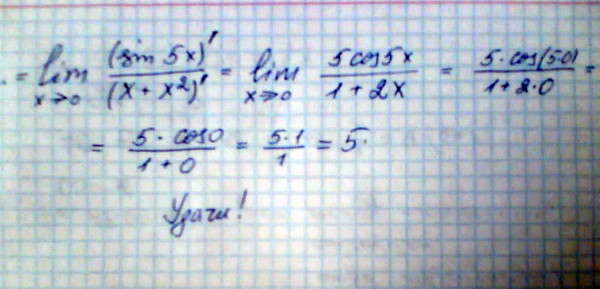 . = lim x→0 (sin 5x)' / (x + x²)' = lim x→0 5cos5x / 1 + 2x = 5 · cos(5·0) / 1 + 2·0 =
= 5 · cos0 / 1 + 0 = 5·1 / 1 = 5.
Удачи!